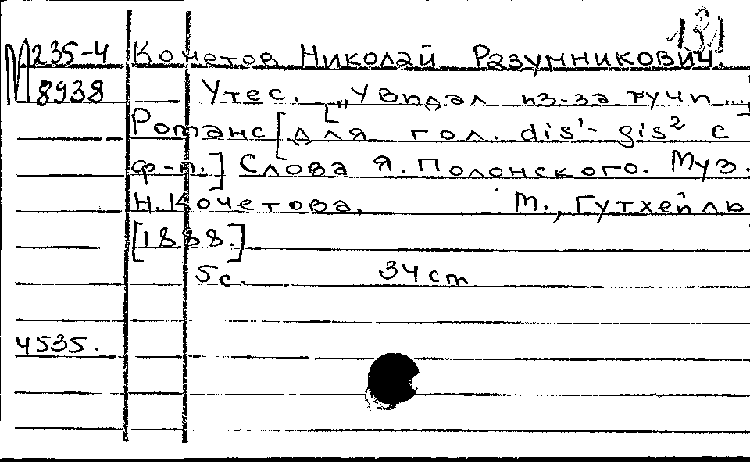 131
М 235-4 Кочетов Николай Разумникович.
8938 Утес. [„Увидал из-за тучи...”]
Романс [для гол. dis¹- gis² с
ф-п.] Слова Я. Полонского. Муз.
Н. Кочетова. М., Гутхейль,
[1888.]
5с. 34 cm
4535.